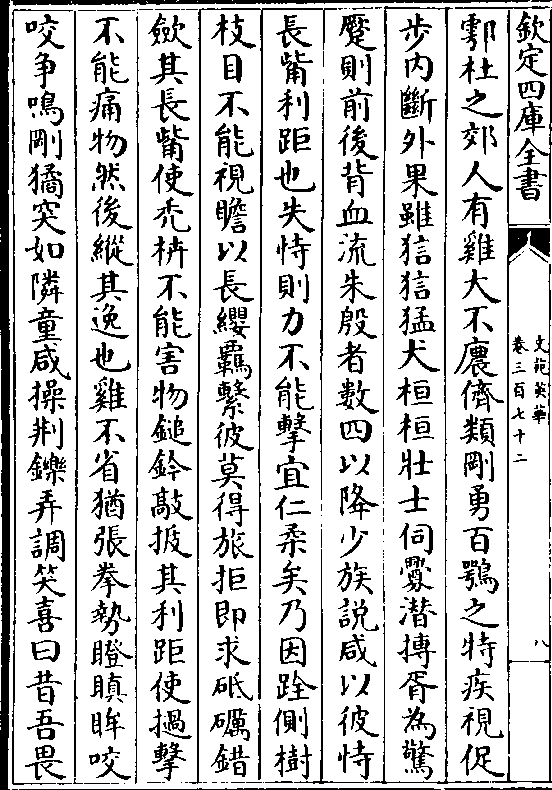 欽定四庫全書
文苑英華
卷三百七十二
八
鄠杜之郊人有雞大不麎儕類剛勇百鶚之特疾視促
步内斷外果雖狺狺猛犬桓桓壯士伺釁潜摶胥為驚
蹙則前後背血流朱殷者數四以降少族說咸以彼恃
長觜利距也失恃則力不能擊宜仁柔矣乃因跧側樹
枝目不能視瞻以長纓羈繫彼莫得旅拒即求砥礪錯
斂其長觜使秃枿不能害物鎚鈐敲扳其利距使撾擊
不能痛物然後縱其逸也雞不省猶張拳勢瞪瞋眸咬
咬争鳴剛獝突如隣童咸操荆鑠弄調笑喜曰昔吾畏